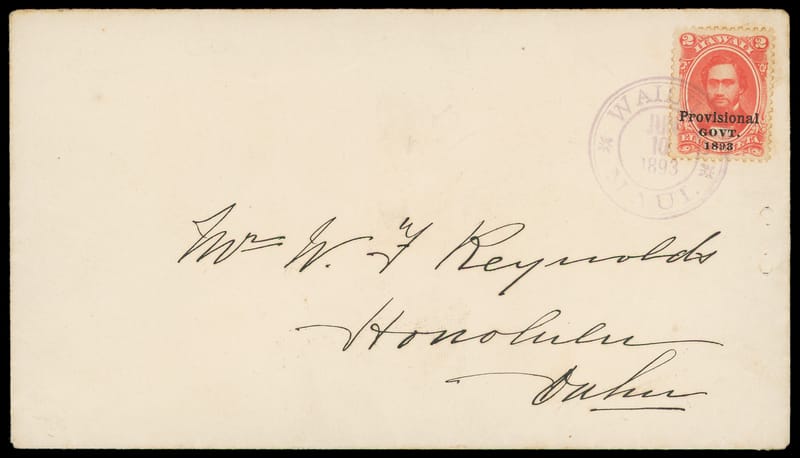 2 HAWAII 2
Provisional
GOVT.
1893
10
1893
MAUI.
Mr W. F Reynolds
Honolulu
Oahu